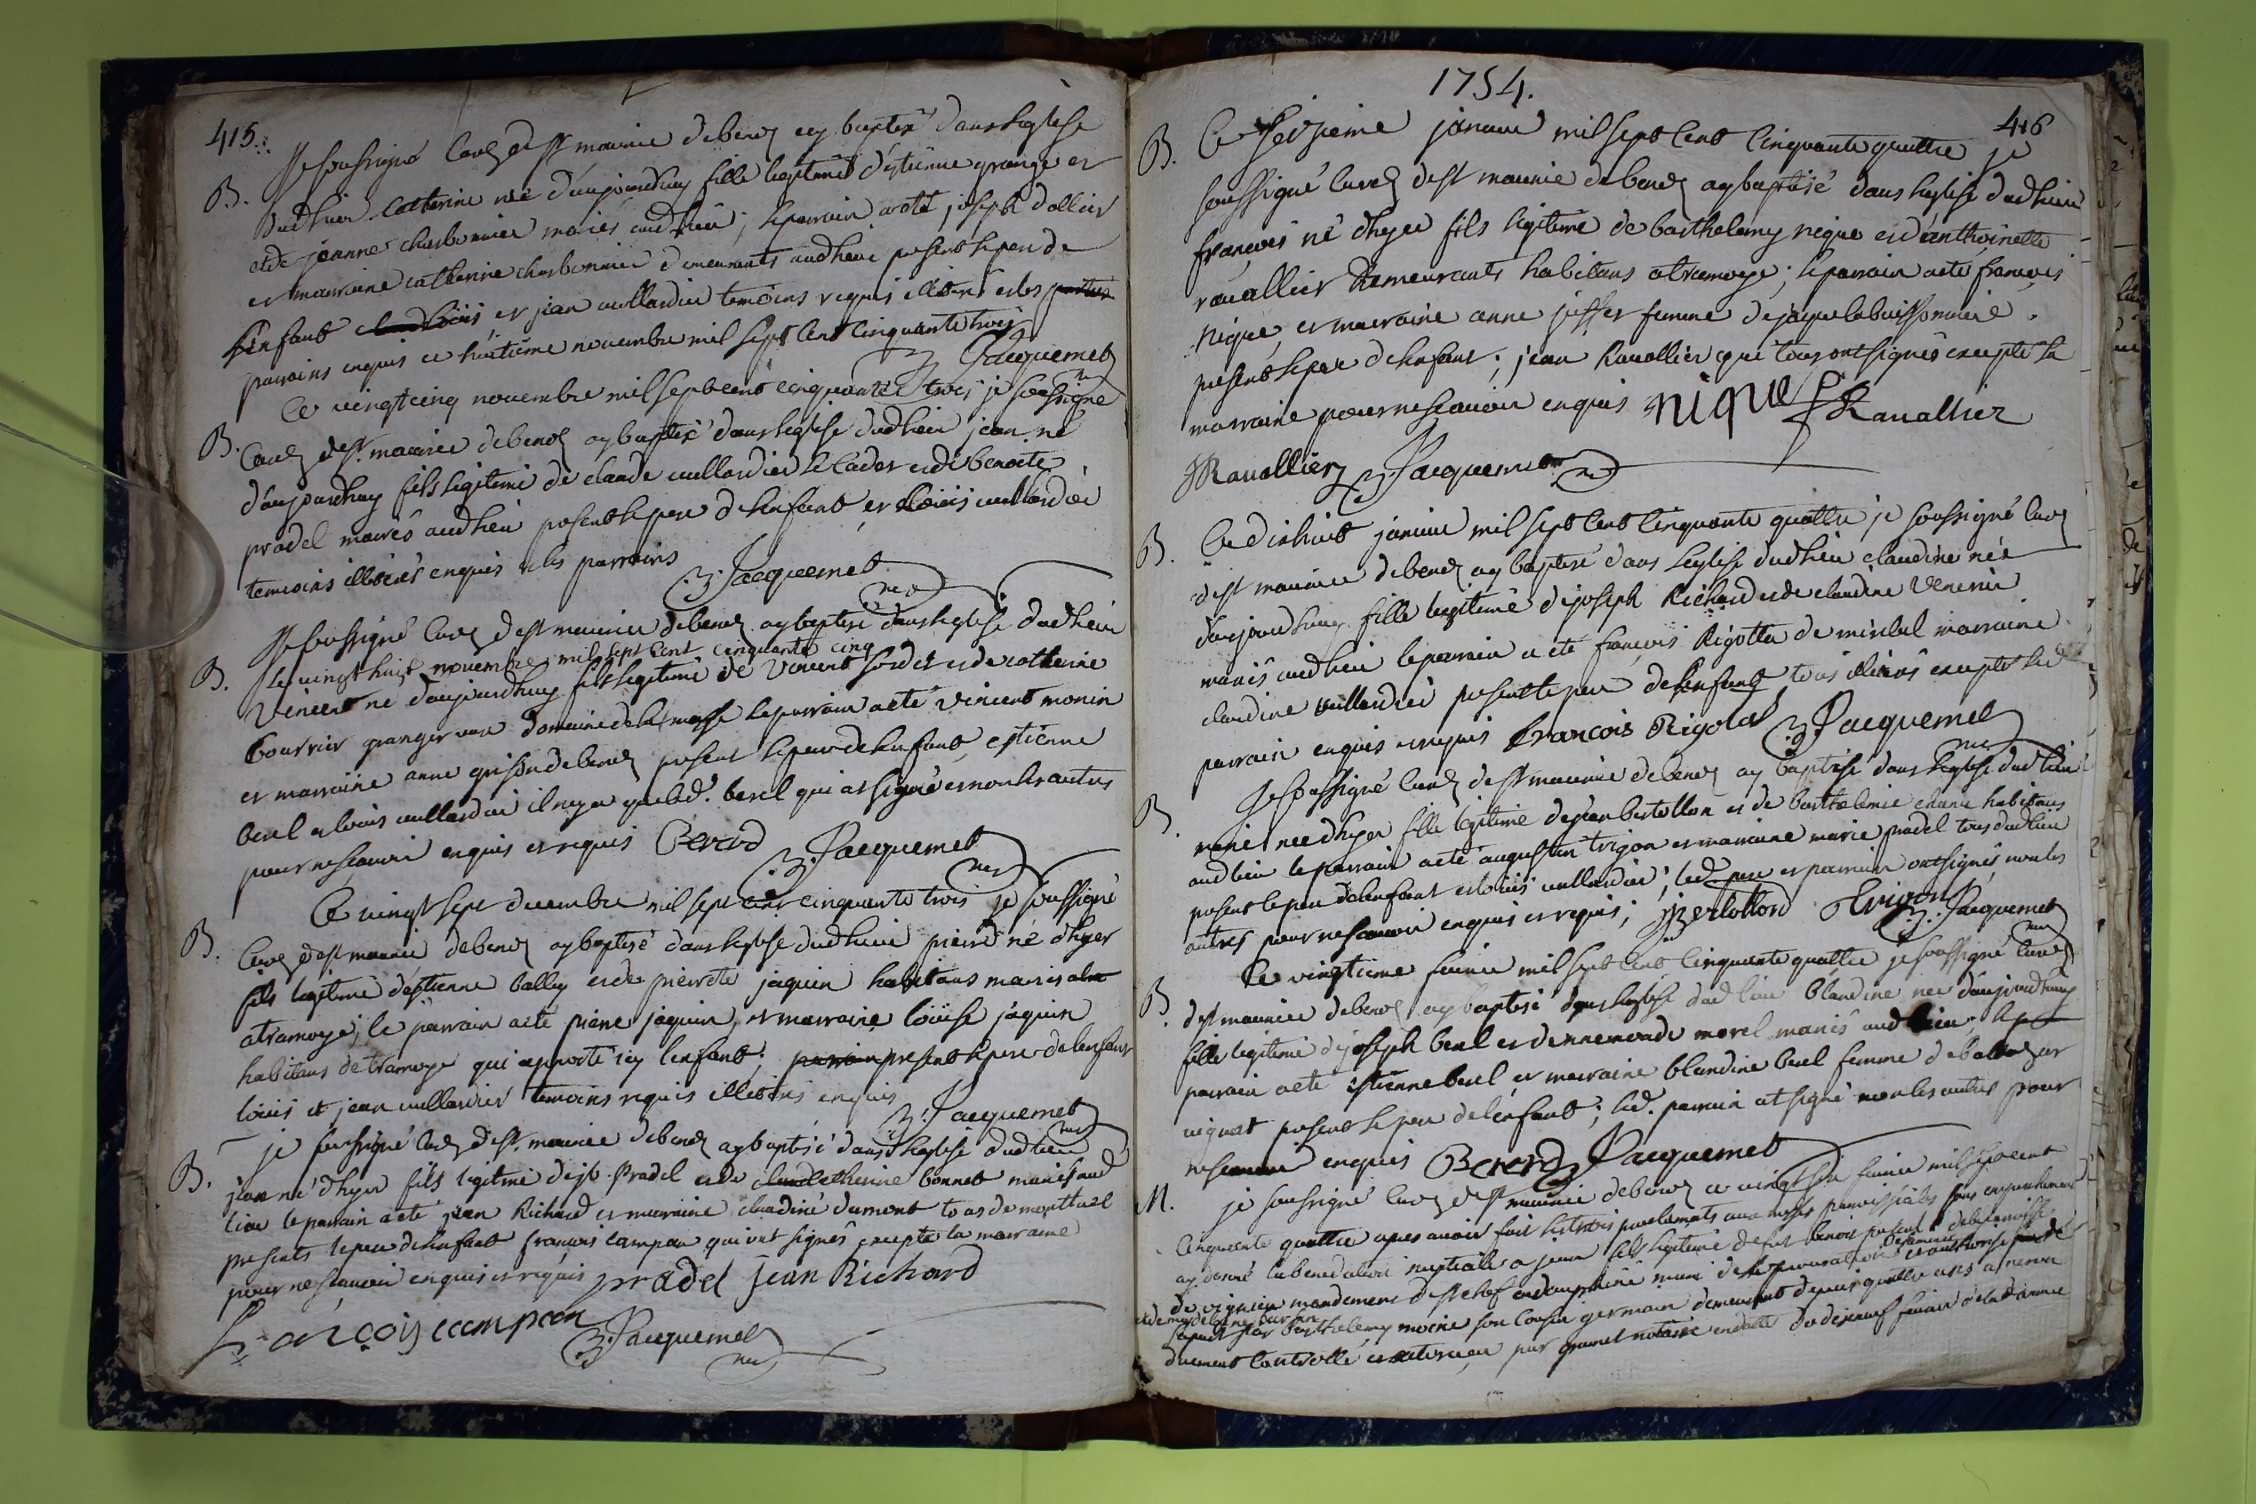 415.
B. Je soussigné Curé de st maurice de beno ay baptisé dans leglise
dudlieu Catterine née d'aujourdhuy fille legitime d'estienne grange et
et de jeanne charbonnier mariés audlieu, le parrain a eté joseph dallier
et marraine catherine charbonnier demeurants audlieu present le pere de
lenfant et jean vullardier temoins requis illitérés et les
parrains enquis ce huitième novembre mil sept cent cinquante trois
Jacquemet
Ce vingt cinq novembre mil sept cent cinquante trois je soussigné
B. Curé de st. maurice de beno ay baptisé dans leglise dudlieu jean né
d'aujourdhuy fils legitime de claude vullardier le Cadet et de benoite
pradel mariés audlieu present le pere de lenfant et loüis vullardier
temoins illitérés enquis et les parrains
Jacquemet
Je soussigné Curé de st maurice de beno ay baptisé dans leglise dudlieu
B. Le vingt huit novembre mil sept Cent cinquante cinq
Vincent né d'aujourdhuy fils legitime de Vincent et de catterine
Bourrier granger au domaine de la le parrain a eté vincent monin
et marraine anne de beno present le pere de lenfant, estienne
berel et loüis vullardier il n'y a que led. berel qui at signé et non les autres
pour ne scavoir enquis et requis Berard Jacquemet
Ce vingt sept decembre mil sept cent cinquante trois je soussigné
B. Curé de st maurice de beno ay baptisé dans leglise dudlieu pierre né d'hyer
fils legitime d'estienne balley et de pierrete jaquin habitans mariés
a tramoye; le parrain a eté piere jaquin, et marraine loüise jaquin
habitans de tramoye qui apporté icy lenfant; present le pere de lenfant
loüis et jean vullardier temoins requis illitérés enquis
Jacquemet
je soussigné Curé de st. maurice de beno ay baptisé dans leglise dudlieu
B. jean né d'hyer fils legitime de jo. Pradel et de catherine bonnet mariés aud
lieu le parrain a eté jean Richard et marraine claudine dumont tous de montluel
presents le pere de lenfant françois campan qui ont signés excepté la marraine
pour ne scavoir enquis et requis pradel jean Richard
François campan
Jacquemet
1754.
416
B. Ce seizieme janvier mil sept cent Cinquante quattre je
soussigné Curé de st maurice de beno ay baptisé dans leglise dudlieu
françois né d'hyer fils legitime de barthelemy nique et d'anthoinette
ravallier demeurants habitans a tramoye; le parrain a eté françois
nique, et marraine anne femme de jaque labuissonniere.
present le pere de lenfant; jean Ravallier que tous ont signés excepté la
marraine pour ne scavoir enquis nique Ravallier
JRavallier Jacquemet
B. Ce dix huit janvier mil sept cent cinquante quattre je soussigné Curé
de st maurice de beno ay baptisé dans leglise dudlieu claudine née
d'aujourdhuy fille legitime de joseph Richard et de claudine
mariés audlieu le parrain a eté françois Rigottat de miribel marraine
claudine vullardier present le pere de lenfant, tous illitérés excepté led
parrain enquis et requis francois Rigolat Jacquemet
B. Je soussigné Curé de st maurice de beno ay baptisé dans leglise dudlieu
marie née d'hyer fille legitime de jean bertollon et de barthelemie habitans
audlieu le parrain a eté augustin trigon et marraine marie pradel tous dudlieu
present le pere de lenfant et loüis vullardier; led. pere et parrain ont signés non les
autres pour ne scavoir enquis et requis; Bertollon trigon Jacquemet
Ce vingtieme fevrier mil sept cent Cinquante quattre je soussigné Curé
B. de st maurice de beno ay baptisé dans leglise dudlieu blandine née d'aujourdhuy
fille legitime de joseph berel et d'ennemonde morel mariés audlieu, le
parrain a eté estienne berel et marraine blandine berel femme de
present le pere de lenfant; led. parrain at signé non les autres pour
ne scavoir enquis Berard Jacquemet
M. je soussigné Curé de st maurice de beno ce vingt six fevrier mil sept cent
Cinquante quattre apres avoir fait les trois proclamats aux messes paroissiales sans empechement
ay donné la benediction nuptiale a jean fils legitime de fut benoit
de mandement de st chef en dauphiné muni de la procuration
par barthelemy moine son Cousin germain demeurant depuis quattre ans a
duement Controllé par notaire en datte du dixneuf fevrier de lad année